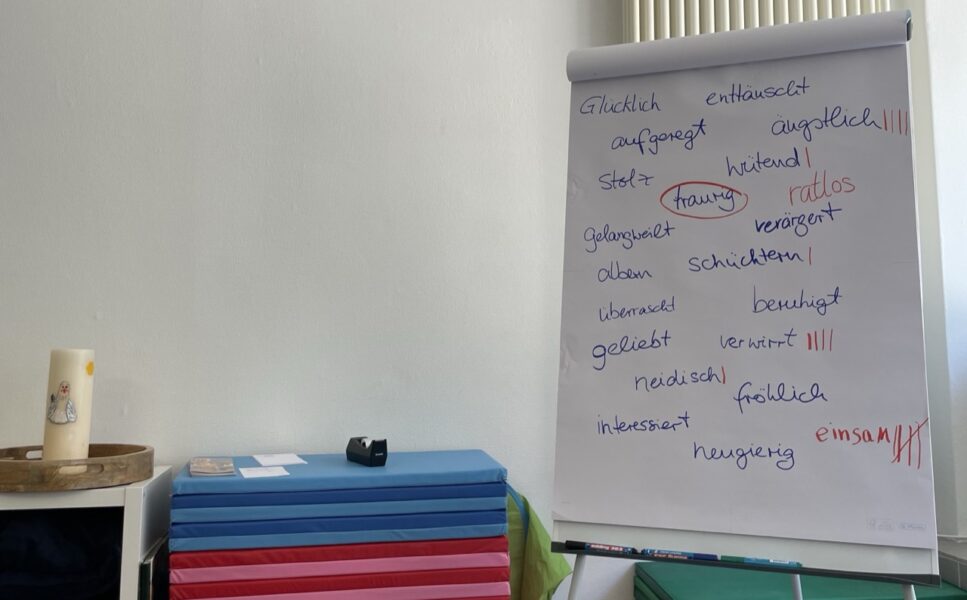 Glücklich enttäuscht
aufgeregt ängstlich ||||
Stolz wütend |
traurig ratlos
gelangweilt verärgert
albern schüchtern |
überrascht beruhigt
geliebt verwirrt ||||
neidisch |
fröhlich
interessiert einsam
neugierig